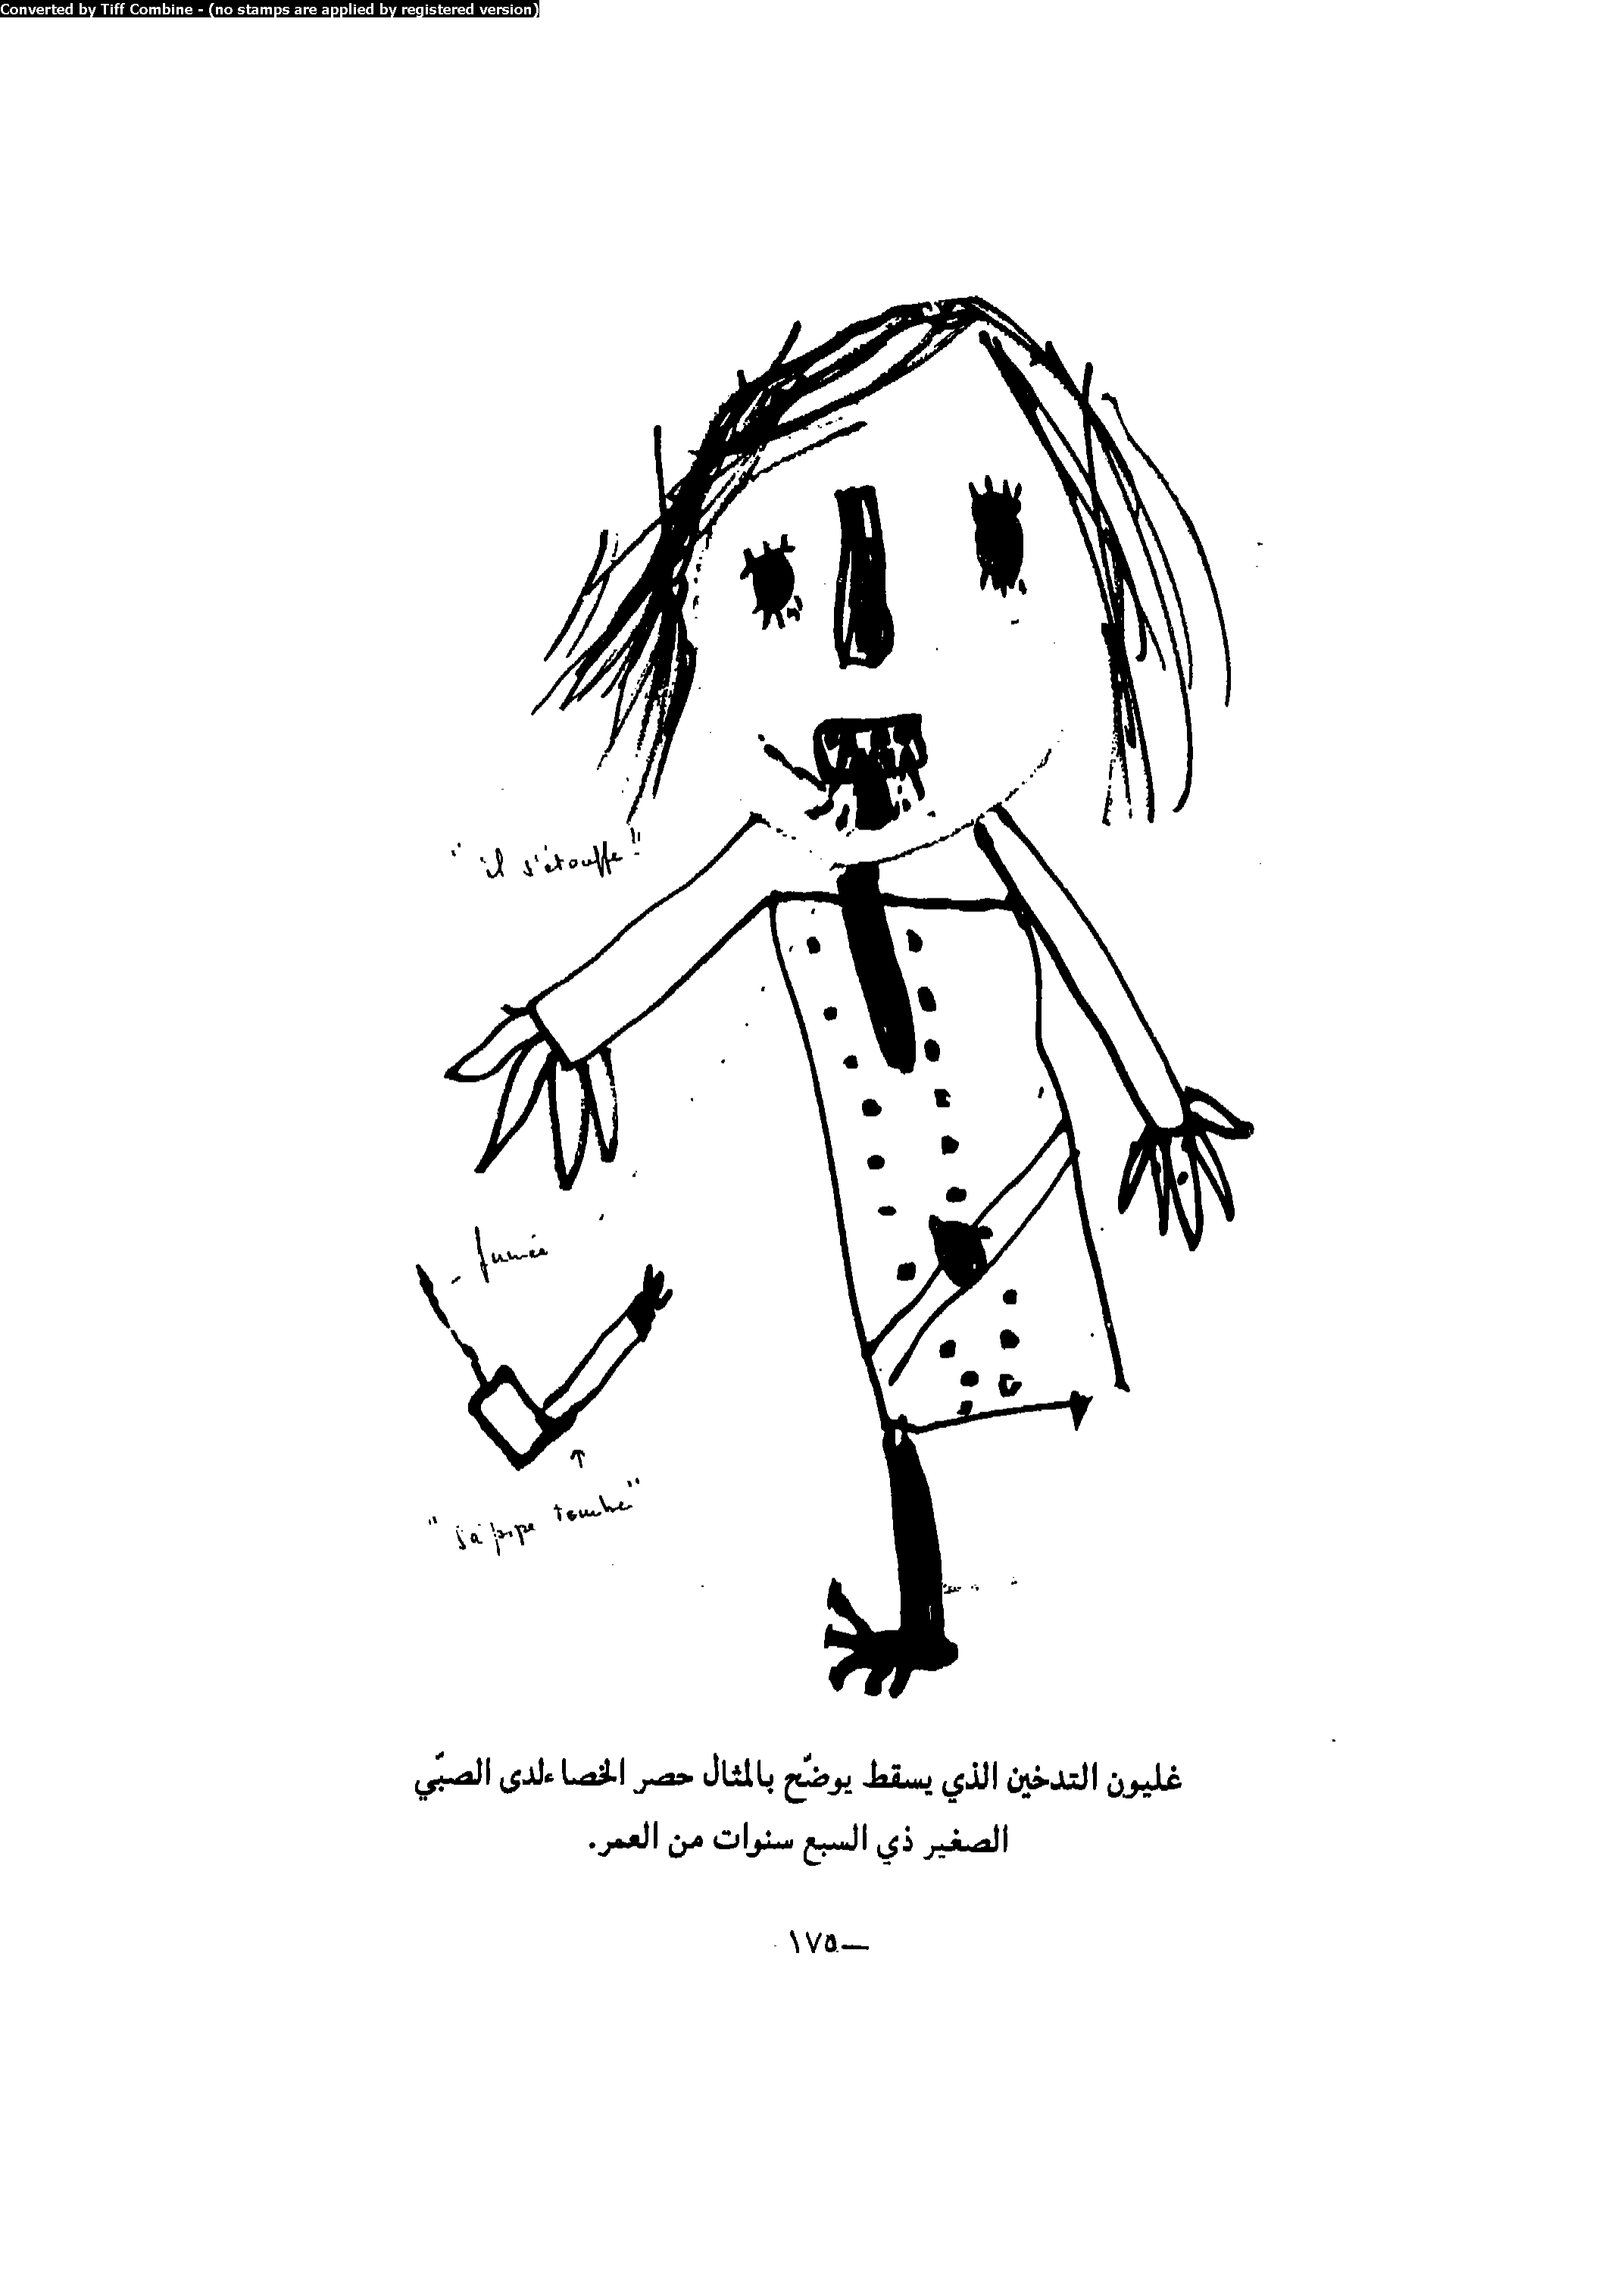 Converted by Tiff Combine - (no stamps are applied by registered version)
"il s'étouffe!"
- fumée
"sa pipe tombe"
غليون التدخين الذي يسقط يوضّح بالمثال حصر الخصاء لدى الصبّي
الصغير ذي السبع سنوات من العمر.
—١٧٥